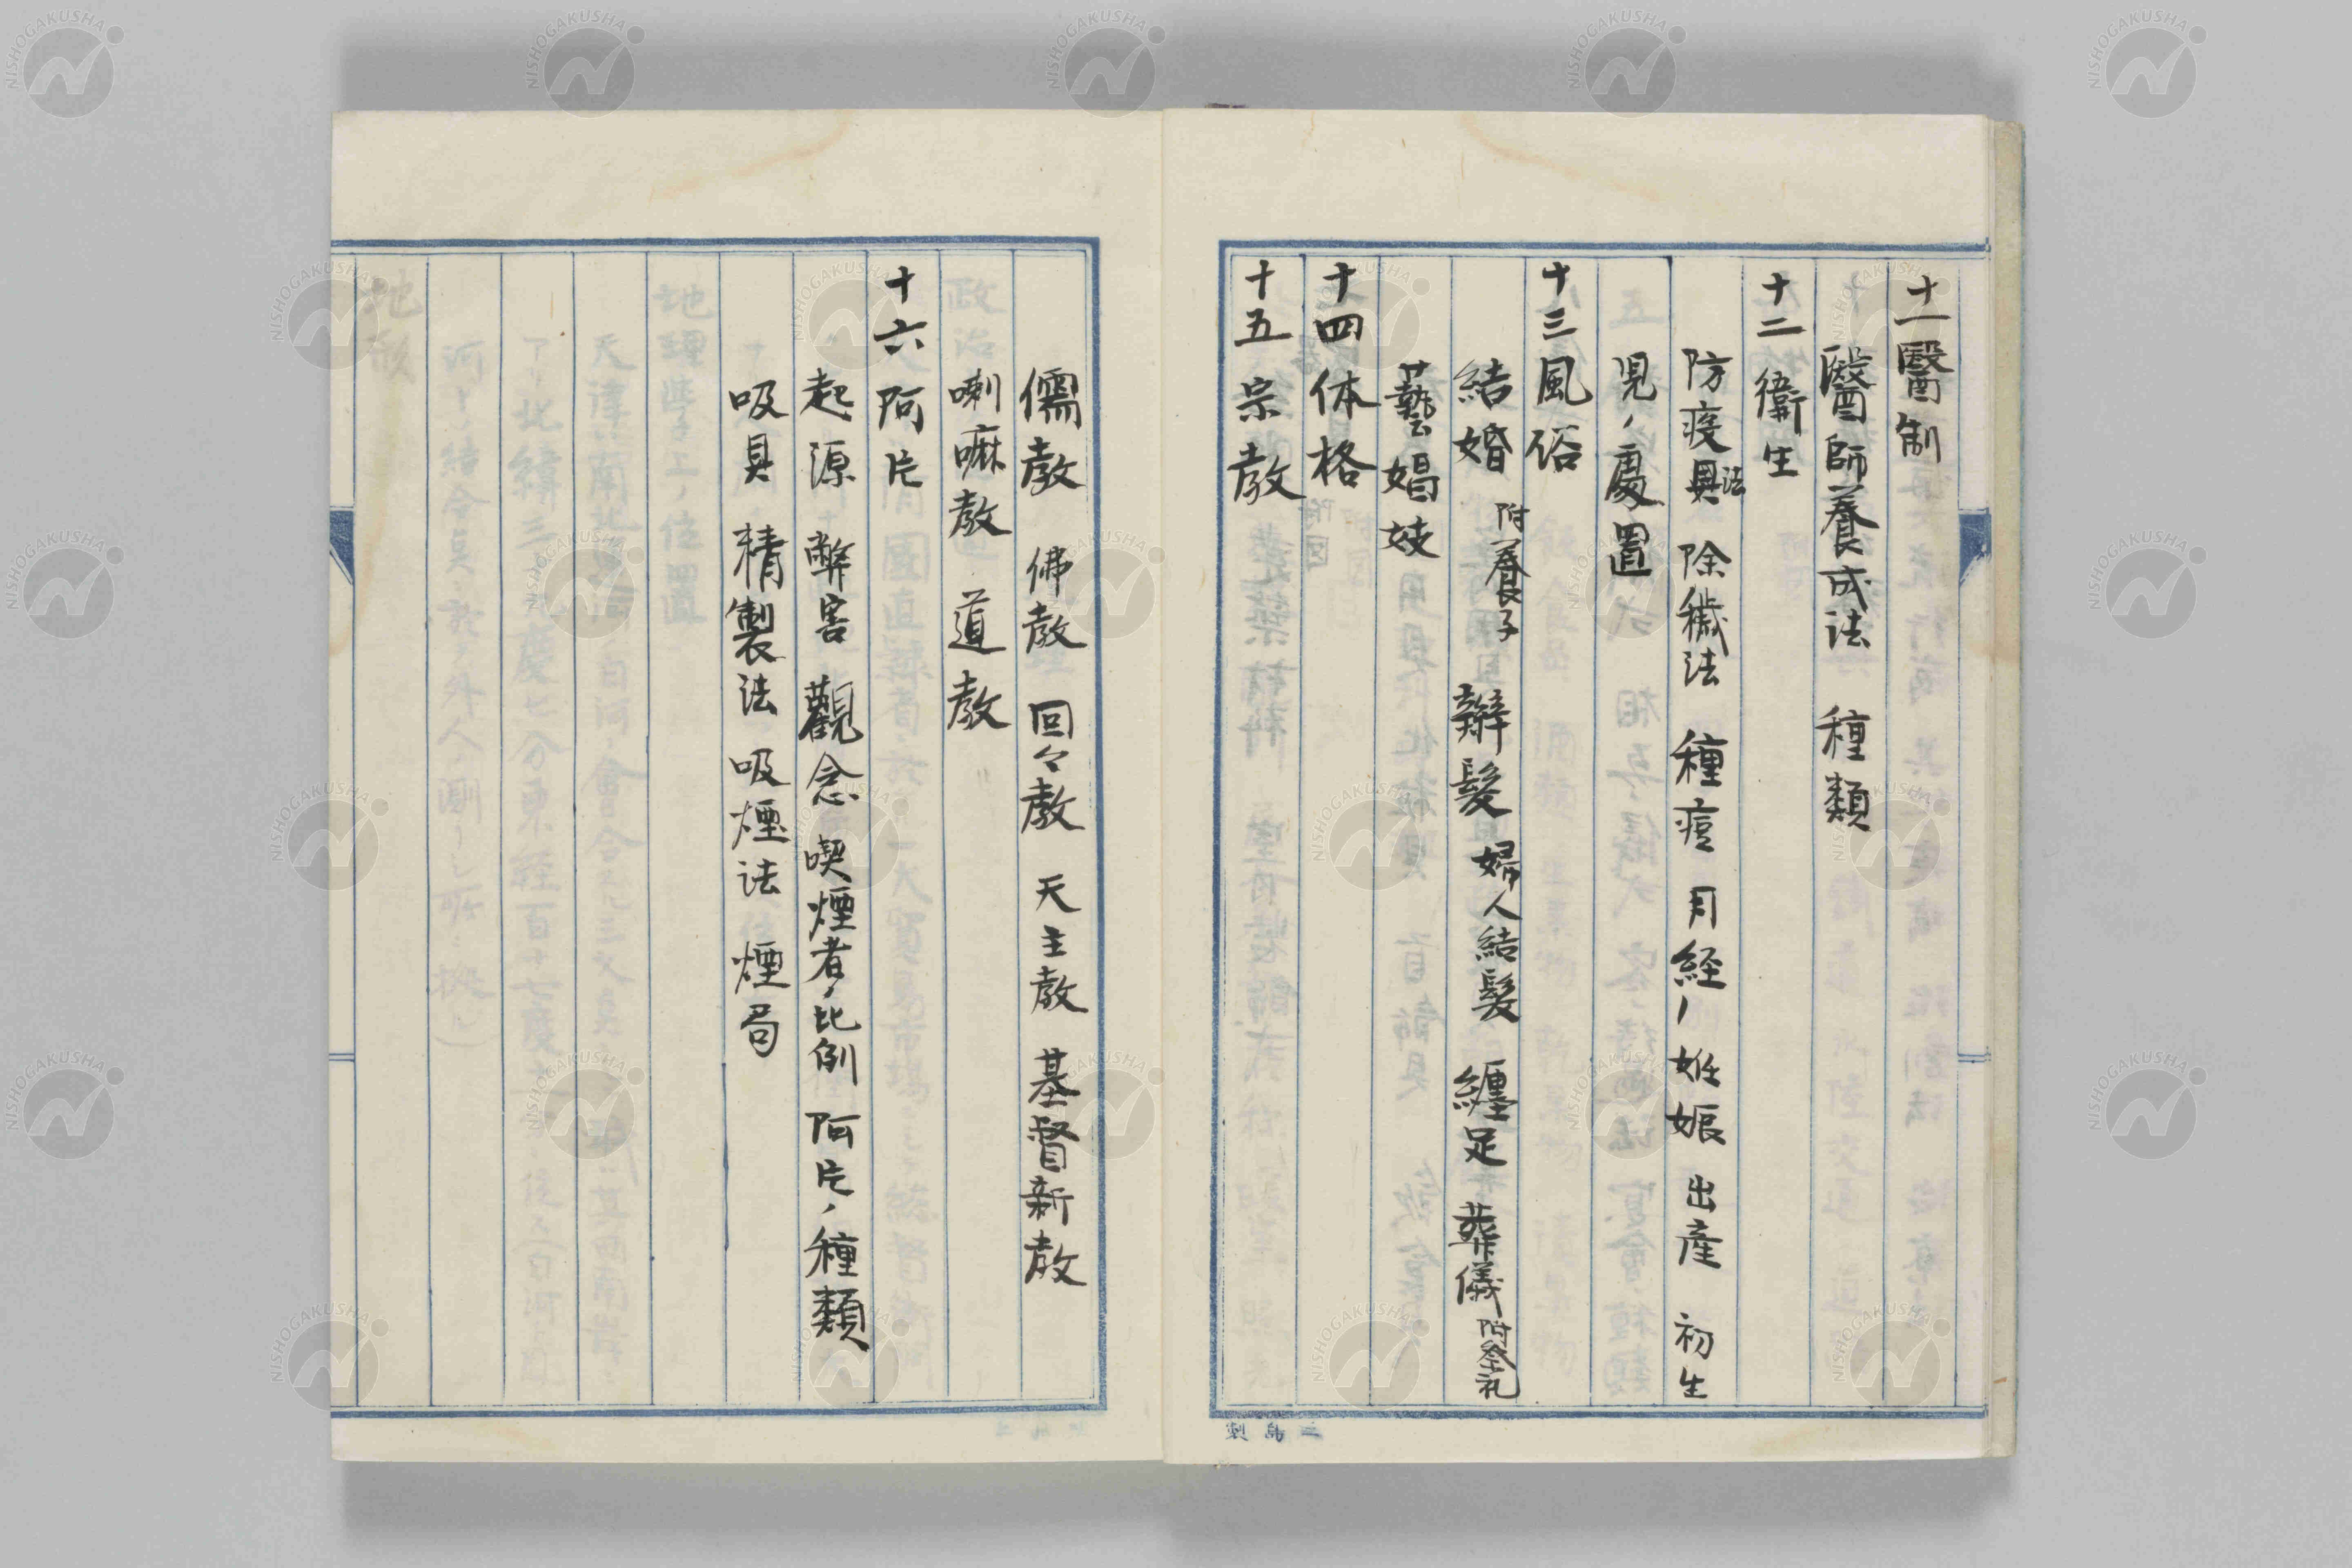 十一醫制
醫師養成法 種類
十二衛生
防疫具法 除穢法 種痘 月経ノ姙娠 出產 初生
児ノ處置
十三風俗
結婚 附養子 辮髮 婦人結髮 纏足 葬儀 附祭礼
藝娼妓
十四体格
十五宗教
三島製
儒教 佛教 回々教 天主教 基督新教
喇嘛教 道教
十六阿片
起源 弊害 觀念 喫煙者ノ比例 阿片ノ種類
吸具 精製法 吸煙法 煙局
NISHOGAKUSHA